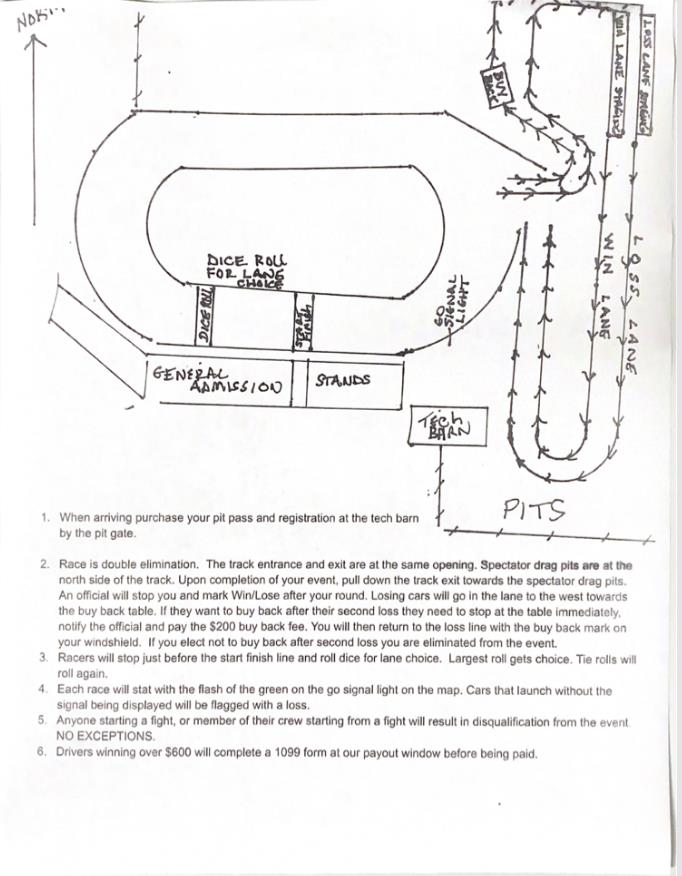 NORTH
LOSS LANE STAGING
WIN LANE STAGING
BUY
BACK
WIN LANE
LOSS LANE
DICE ROLL
FOR LANE
CHOICE
GO
SIGNAL
LIGHT
DICE ROLL
START
FINISH
GENERAL
ADMISSION
STANDS
TECH
BARN
PITS
1. When arriving purchase your pit pass and registration at the tech barn
by the pit gate.
2. Race is double elimination. The track entrance and exit are at the same opening. Spectator drag pits are at the
north side of the track. Upon completion of your event, pull down the track exit towards the spectator drag pits.
An official will stop you and mark Win/Lose after your round. Losing cars will go in the lane to the west towards
the buy back table. If they want to buy back after their second loss they need to stop at the table immediately,
notify the official and pay the $200 buy back fee. You will then return to the loss line with the buy back mark on
your windshield. If you elect not to buy back after second loss you are eliminated from the event.
3. Racers will stop just before the start finish line and roll dice for lane choice. Largest roll gets choice. Tie rolls will
roll again.
4. Each race will stat with the flash of the green on the go signal light on the map. Cars that launch without the
signal being displayed will be flagged with a loss.
5. Anyone starting a fight, or member of their crew starting from a fight will result in disqualification from the event
NO EXCEPTIONS.
6. Drivers winning over $600 will complete a 1099 form at our payout window before being paid.